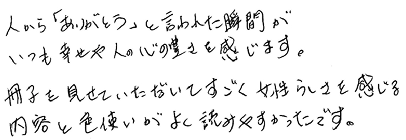 人から「ありがとう」と言われた瞬間が
いつも幸せや人の心の豊さを感じます。
冊子を見せていただいてすごく女性らしさを感じる
内容と色使いがよく読みやすかったです。